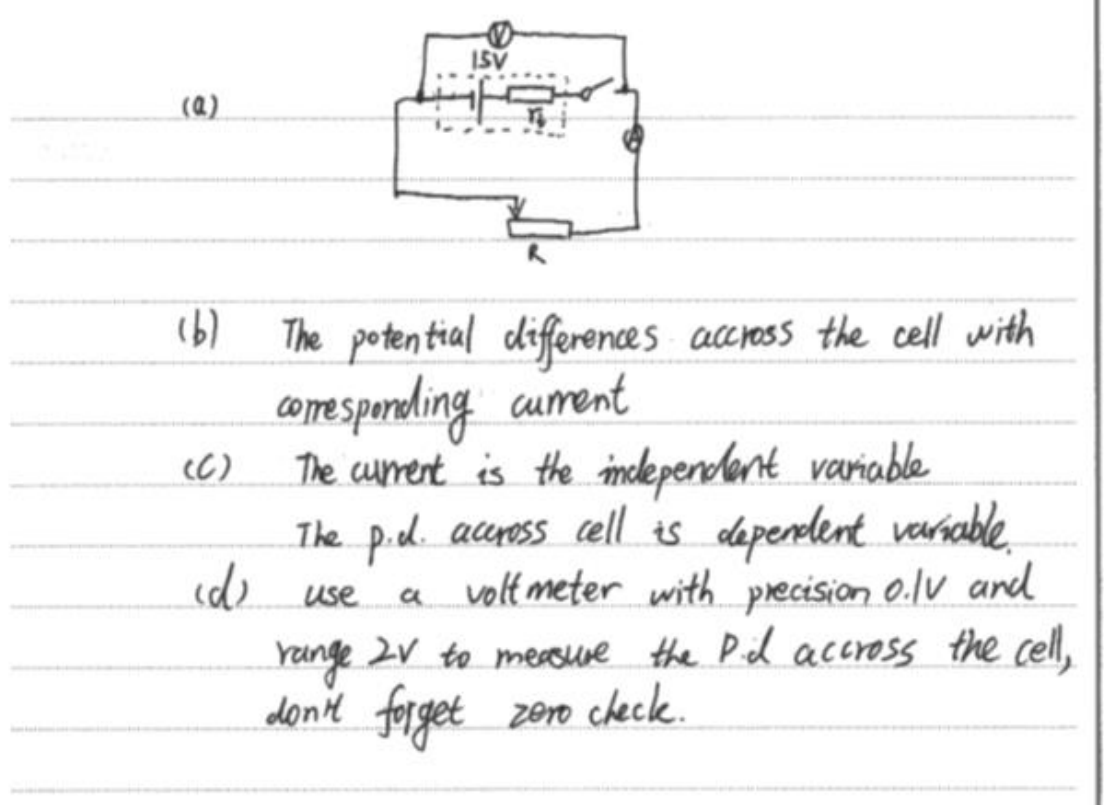 V
1.5V
(a)
r_b
A
R
(b) The potential differences accross the cell with
corresponding current
(c) The current is the independent variable
The p.d. accross cell is dependent variable.
(d) use a voltmeter with precision 0.1V and
range 2V to measure the P.d accross the cell,
don't forget zero check.